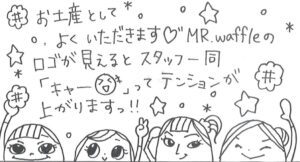 お土産として
よくいただきます♡MR.waffleの
ロゴが見えるとスタッフ一同
「キャー😆」ってテンションが
上がりますっ!!